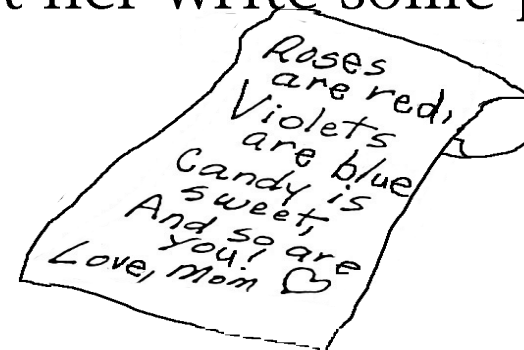 t her write some p
Roses
are red,
Violets
are blue
Candy is
sweet,
And so are
you!
Love, Mom ♡